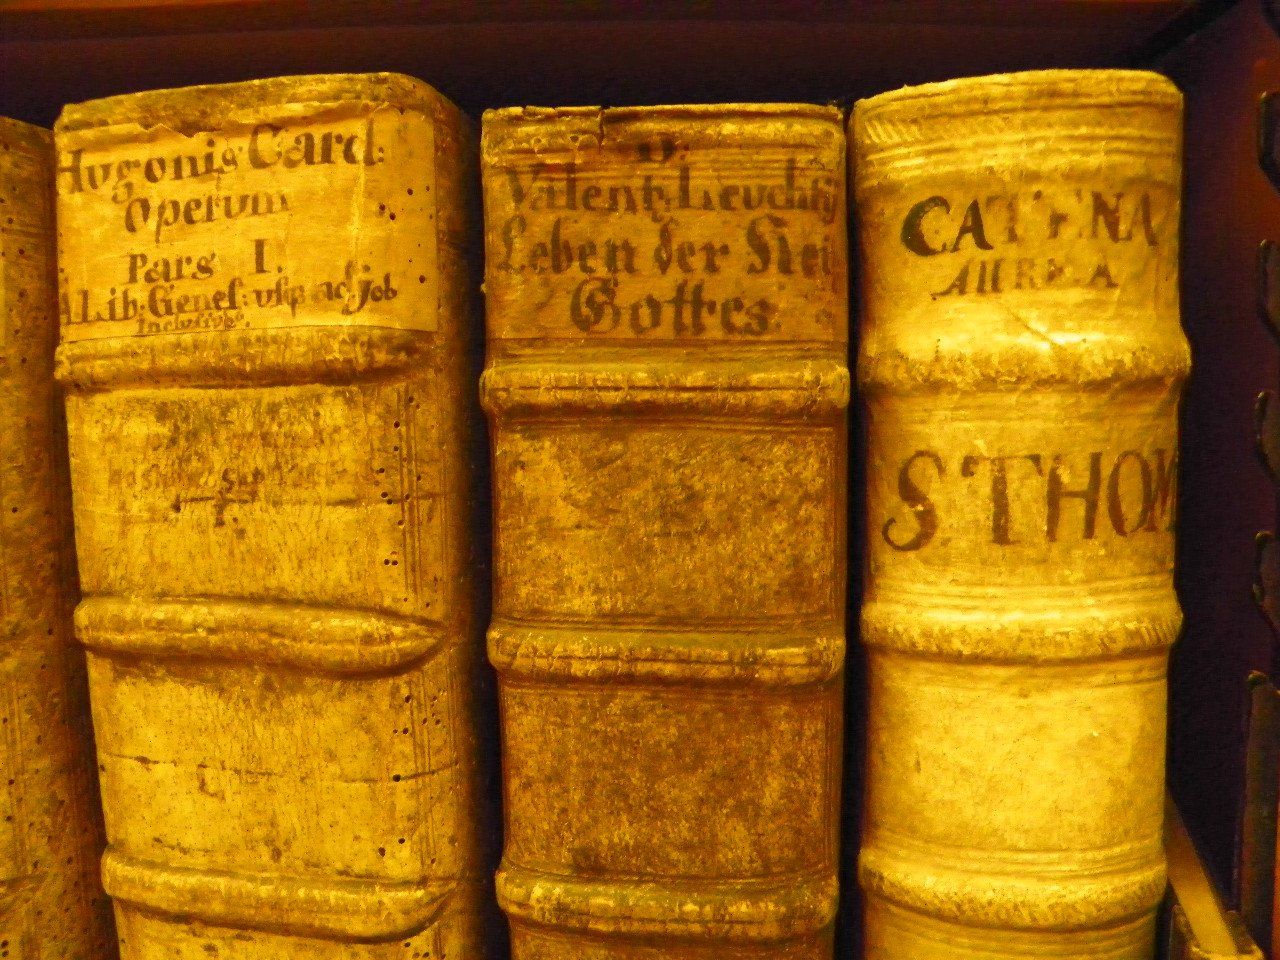 Hugonis Card:
Operum
Pars I.
A Lib: Genes: usq ad Job
Inclusive.
D.
Valent. Leucht
Leben der Hei
Gottes.
CATENA
AUREA
S. THOM